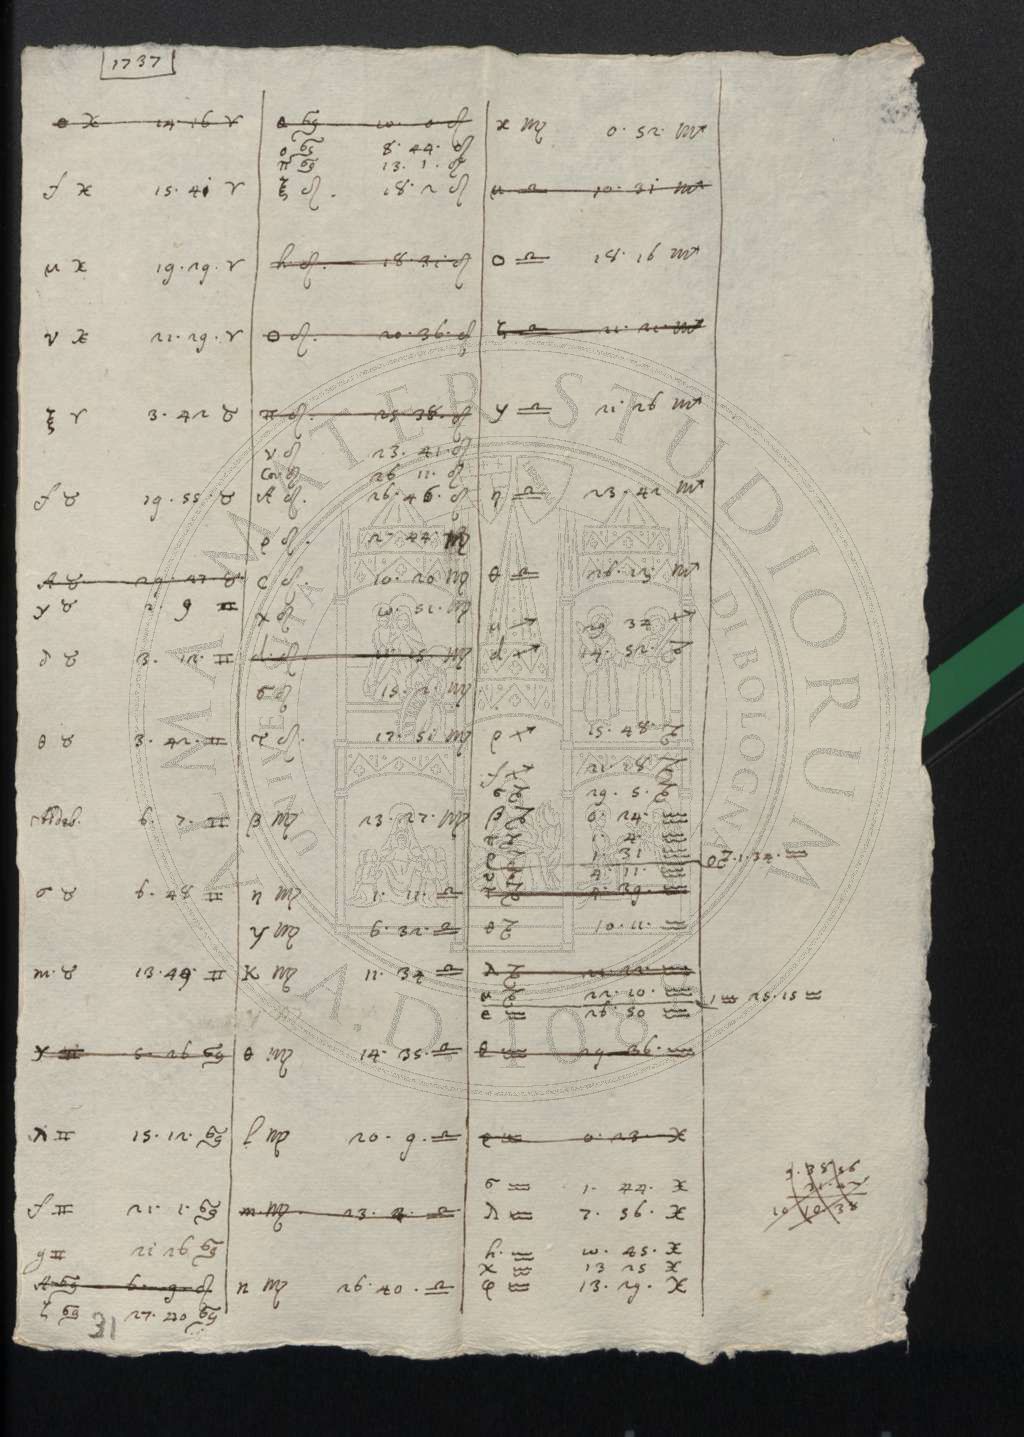 1737
o ♓ 14 · 16 ♈
f ♓ 15 · 41 ♈
μ ♓ 19 · 29 · ♈
ν ♓ 21 · 29 · ♈
ξ ♈ 3 · 42 ♉
f ♉ 19 · 55 · ♉
A ♉ 29 · 47 ♉
γ ♉ 2 · 9 ♊
δ ♉ 3 · 12 · ♊
θ ♉ 3 · 42 · ♊
Aldeb. 6 · 7 · ♊
σ ♉ 6 · 48 ♊
m · ♉ 13 · 49 · ♊
γ ♊ 5 · 26 ♋
λ ♊ 15 · 12 · ♋
f ♊ 21 · 1 · ♋
g ♊ 21 26 ♋
A ♋ 6 · 9 · ♌
ζ ♋ 27 · 20 ♋
31
θ ♋ 10 · 0 ♌
o ♋ 8 · 44 · ♌
π ♋ 13 · 1 · ♌
ξ ♌ · 18 · 2 ♌
h ♌ · 18 · 31 · ♌
o ♌ · 20 · 36 · ♌
π ♌ · 25 · 38 · ♌
ν ♌ 23 · 41 · ♌
Cor ♌ 26 11 · ♌
A ♌ · 26 · 46 · ♌
ρ ♌ · 27 · 44 · ♍
c ♌ · 10 · 20 ♍
χ ♌ 10 · 51 · ♍
d · ♌ · 11 · 15 ♍
σ ♌ 15 · 2 · ♍
τ ♌ · 17 · 51 ♍
β ♍ 23 · 27 · ♍
η ♍ 1 · 11 · ♎
γ ♍ 6 · 32 · ♎
K ♍ 11 · 34 ♎
θ ♍ 14 · 35 · ♎
l ♍ 20 · 9 · ♎
m ♍ · 23 · 4 · ♎
n ♍ 26 · 40 · ♎
x ♍ 0 · 52 · ♏
μ ♎ 10 · 31 ♏
o ♎ 18 · 16 ♏
ζ ♎ 21 · 21 · ♏
γ ♎ 21 · 26 ♏
η ♎ 23 · 42 ♏
θ ♎ 26 · 23 · ♏
μ ♐ 29 34 ♐
d ♐ 14 · 52 · ♑
ρ ♐ 15 · 48 · ♑
f ♐ 21 · 28 ♑
σ ♑ 29 · 5 · ♑
β ♑ 0 · 24 · ♒
1 · 4 · ♒
1 · 31 ♒
4 · 11 · ♒
4 · 39 · ♒
o ♑ · 1 · 34 · ♒
θ ♑ 10 · 11 · ♒
λ ♑ 21 · 22 · ♒
μ ♑ 22 · 10 · ♒
ι ♒ 25 · 15 ♒
e ♒ 26 · 50 ♒
θ ♒ 29 · 36 · ♒
ρ ♒ 0 · 23 · ♓
σ ♒ 1 · 44 · ♓
λ ♒ 7 · 56 · ♓
h · ♒ 10 · 45 · ♓
χ ♒ 13 25 ♓
φ ♒ 13 · 29 · ♓
9 · 38 56
31 · 42
10 10 · 38
ALMA MATER STUDIORUM
UNIVERSITÀ DI BOLOGNA
A.D. 1088